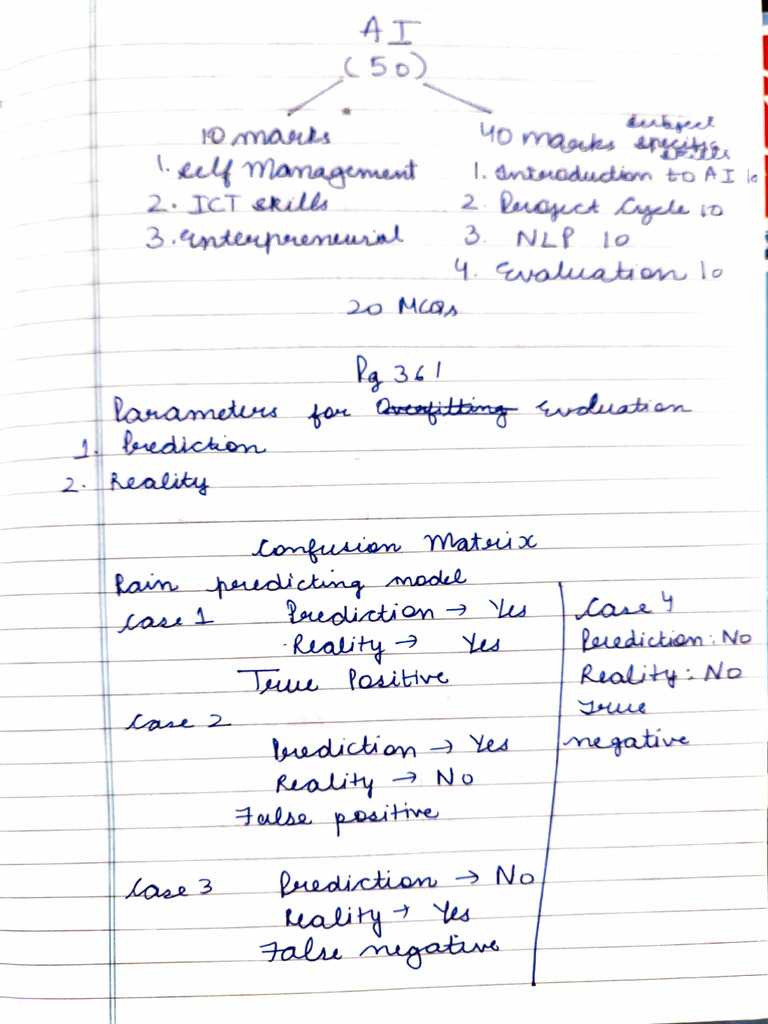 AI
(50)
10 marks
1. Self Management
2. ICT skills
3. Enterpreneurial
40 marks subject specific skills
1. Introduction to AI 10
2. Project Cycle 10
3. NLP 10
4. Evaluation 10
20 MCQs
Pg 361
Parameters for Overfitting Evaluation
1. Prediction
2. Reality
Confusion Matrix
Rain predicting model
Case 1 Prediction → Yes
Reality → Yes
True Positive
Case 2
Prediction → Yes
Reality → No
False positive
Case 3 Prediction → No
Reality → Yes
False negative
Case 4
Prediction: No
Reality: No
True
negative